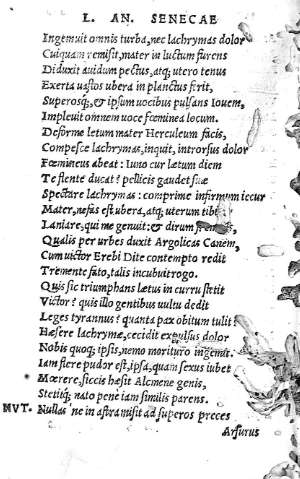 L. AN. SENECAE
Ingemuit omnis turba, nec lachrymas dolor
Cuiquam remisit, mater in luctum furens
Diduxit auidum pectus, atq; utero tenus
Exerta uastos ubera in planctus ferit,
Superosq;, & ipsum uocibus pulsans Iouem,
Impleuit omnem uoce fœminea locum.
Deforme letum mater Herculeum facis,
Compesce lachrymas, inquit, introrsus dolor
Fœmineus abeat: Iuno cur lætum diem
Te flente ducat? pellicis gaudet suæ
Spectare lachrymas: comprime infirmum iecur
Mater, nefas est ubera, atq; uterum tibi
Laniare, qui me genuit: & dirum
Qualis per urbes duxit Argolicas Canem,
Cum uictor Erebi Dite contempto redit
Tremente fato, talis incubuit rogo.
Quis sic triumphans lætus in curru stetit
Victor? quis illo gentibus uultu dedit
Leges tyrannus? quanta pax obitum tulit?
Hæsere lachrymæ, cecidit expulsus dolor
Nobis quoq; ipsis, nemo morituro ingemit.
Iam flere pudor est, ipsa, quam sexus iubet
Mœrere, siccis hæsit Alcmene genis,
Stetitq; nato pene iam similis parens.
NVT. Nullas 'ne in astra misit ad superos preces
Arsurus